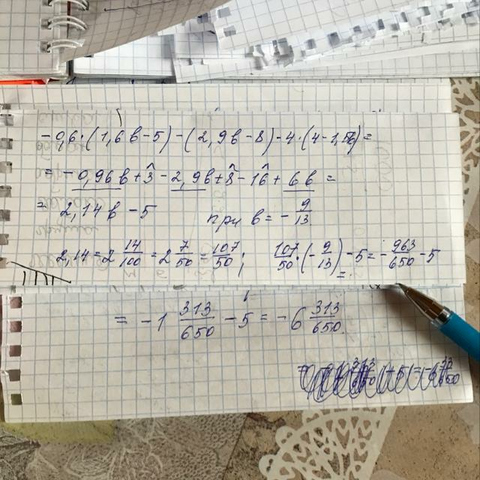 -0,6·(1,6в-5)-(2,9в-8)-4·(4-1,5в)=
= -0,96в+3-2,9в+8-16+6в=
= 2,14в-5 при в=-9/13
2,14=2 14/100=2 7/50=107/50; 107/50·(-9/13)-5=-963/650-5
= -1 313/650 -5= -6 313/650.